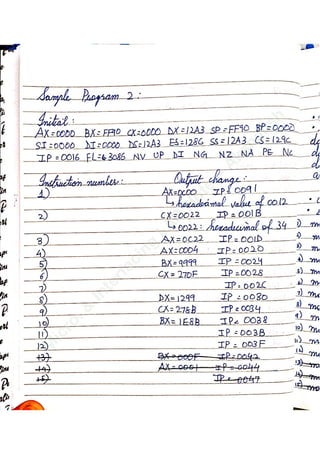 Sample Program 2:
Initial:
AX=0000 BX=FF90 CX=0000 DX=12A3 SP=FF90 BP=0000
SI=0000 DI=0000 DS=12A3 ES=128G SS=12A3 CS=129C
IP=0016 FL=6308G NV UP DI NG NZ NA PE NC
Instruction number: Output change:
1) AX=0C00 IP=0091
↳ hexadecimal value of 0012
2) CX=0022 IP=001B
↳ 0022: hexadecimal of 34
3) AX=0C22 IP=001D
4) AX=0004 IP=0020
5) BX=9999 IP=0024
6) CX=270F IP=0028
7) IP=002C
8) DX=1299 IP=0030
9) CX=278B IP=0034
10) BX=1E8B IP=0038
11) IP=003B
12) IP=003F
13) BX=000F IP=0042
14) AX=0001 IP=0044
15) IP=0047